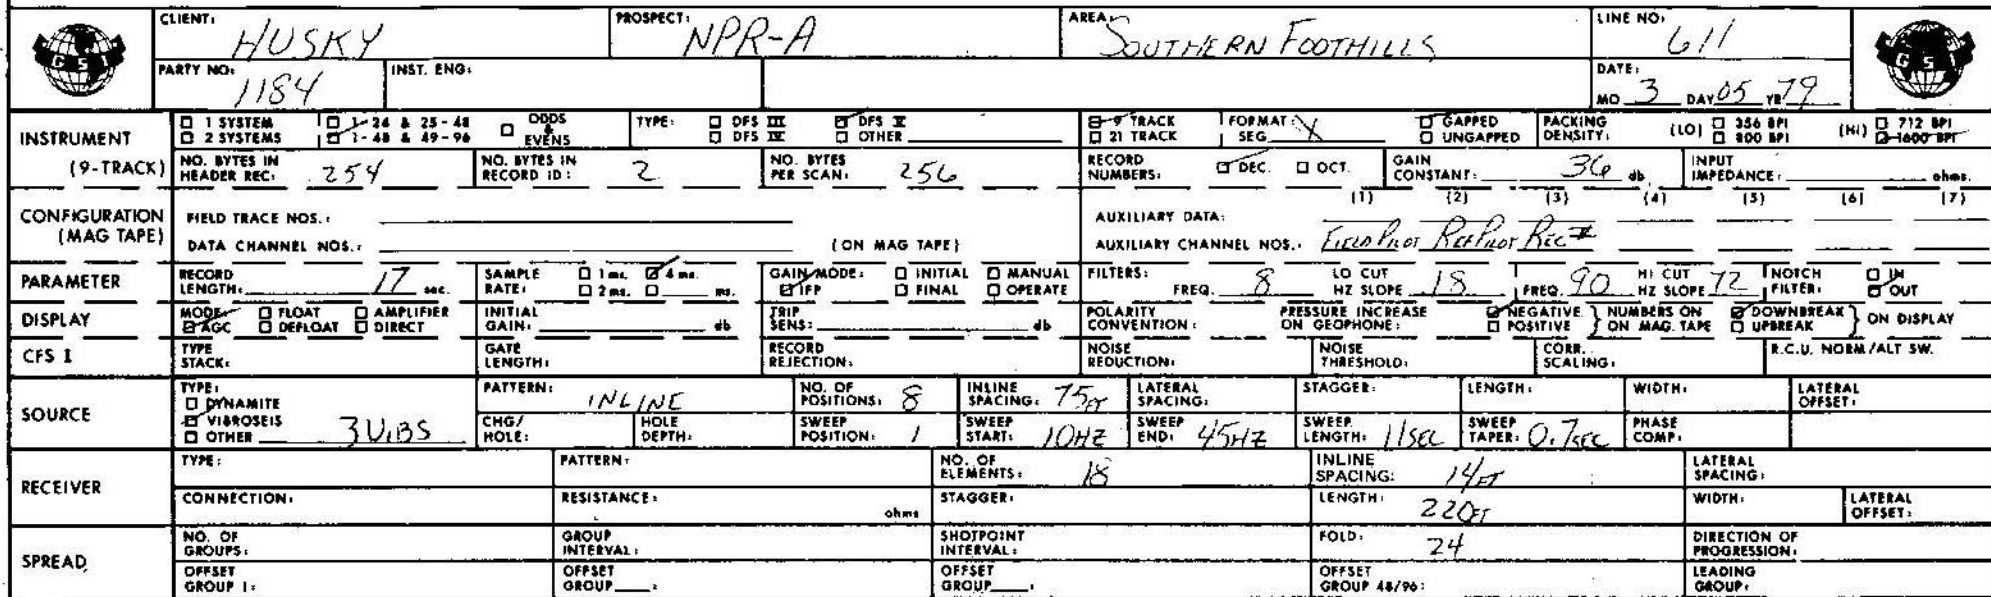 CLIENT: HUSKY PROSPECT: NPR-A AREA: SOUTHERN FOOTHILLS LINE NO: 611
GSI GSI
PARTY NO: 1184 INST. ENG: DATE: MO 3 DAY 05 YR 79
INSTRUMENT (9-TRACK)
1 SYSTEM 1-24 & 25-48 ODDS & EVENS TYPE: DFS III DFS V 9 TRACK FORMAT: SEG X GAPPED PACKING DENSITY: (LO) 356 BPI (HI) 712 BPI
2 SYSTEMS 1-48 & 49-96 DFS IV OTHER 21 TRACK UNGAPPED 800 BPI 1600 BPI
NO. BYTES IN HEADER REC: 254 NO. BYTES IN RECORD ID: 2 NO. BYTES PER SCAN: 256 RECORD NUMBERS: DEC. OCT. GAIN CONSTANT: 36 db INPUT IMPEDANCE: ohms.
CONFIGURATION (MAG TAPE)
(1) (2) (3) (4) (5) (6) (7)
FIELD TRACE NOS.: AUXILIARY DATA:
DATA CHANNEL NOS.: (ON MAG TAPE) AUXILIARY CHANNEL NOS.: FIELD PILOT REF PILOT REC #
PARAMETER RECORD LENGTH: 17 sec. SAMPLE RATE: 1 ms. 4 ms. 2 ms. ms. GAIN MODE: INITIAL MANUAL IFP FINAL OPERATE FILTERS: FREQ. 8 LO CUT HZ SLOPE 18 FREQ. 90 HI CUT HZ SLOPE 72 NOTCH FILTER: IN OUT
DISPLAY MODE: FLOAT AMPLIFIER AGC DEFLOAT DIRECT INITIAL GAIN: db TRIP SENS: db POLARITY CONVENTION: PRESSURE INCREASE ON GEOPHONE: NEGATIVE POSITIVE } NUMBERS ON ON MAG. TAPE DOWNBREAK UPBREAK } ON DISPLAY
CFS I TYPE STACK: GATE LENGTH: RECORD REJECTION: NOISE REDUCTION: NOISE THRESHOLD: CORR. SCALING: R.C.U. NORM/ALT SW.
SOURCE
TYPE: DYNAMITE VIBROSEIS OTHER 3 VIBS
PATTERN: INLINE NO. OF POSITIONS: 8 INLINE SPACING: 75 FT LATERAL SPACING: STAGGER: LENGTH: WIDTH: LATERAL OFFSET:
CHG/HOLE: HOLE DEPTH: SWEEP POSITION: 1 SWEEP START: 10HZ SWEEP END: 45HZ SWEEP LENGTH: 11SEC SWEEP TAPER: 0.7SEC PHASE COMP:
RECEIVER
TYPE: PATTERN: NO. OF ELEMENTS: 18 INLINE SPACING: 14 FT LATERAL SPACING:
CONNECTION: RESISTANCE: ohms STAGGER: LENGTH: 220 FT WIDTH: LATERAL OFFSET:
SPREAD
NO. OF GROUPS: GROUP INTERVAL: SHOTPOINT INTERVAL: FOLD: 24 DIRECTION OF PROGRESSION:
OFFSET GROUP 1: OFFSET GROUP : OFFSET GROUP : OFFSET GROUP 48/96: LEADING GROUP: